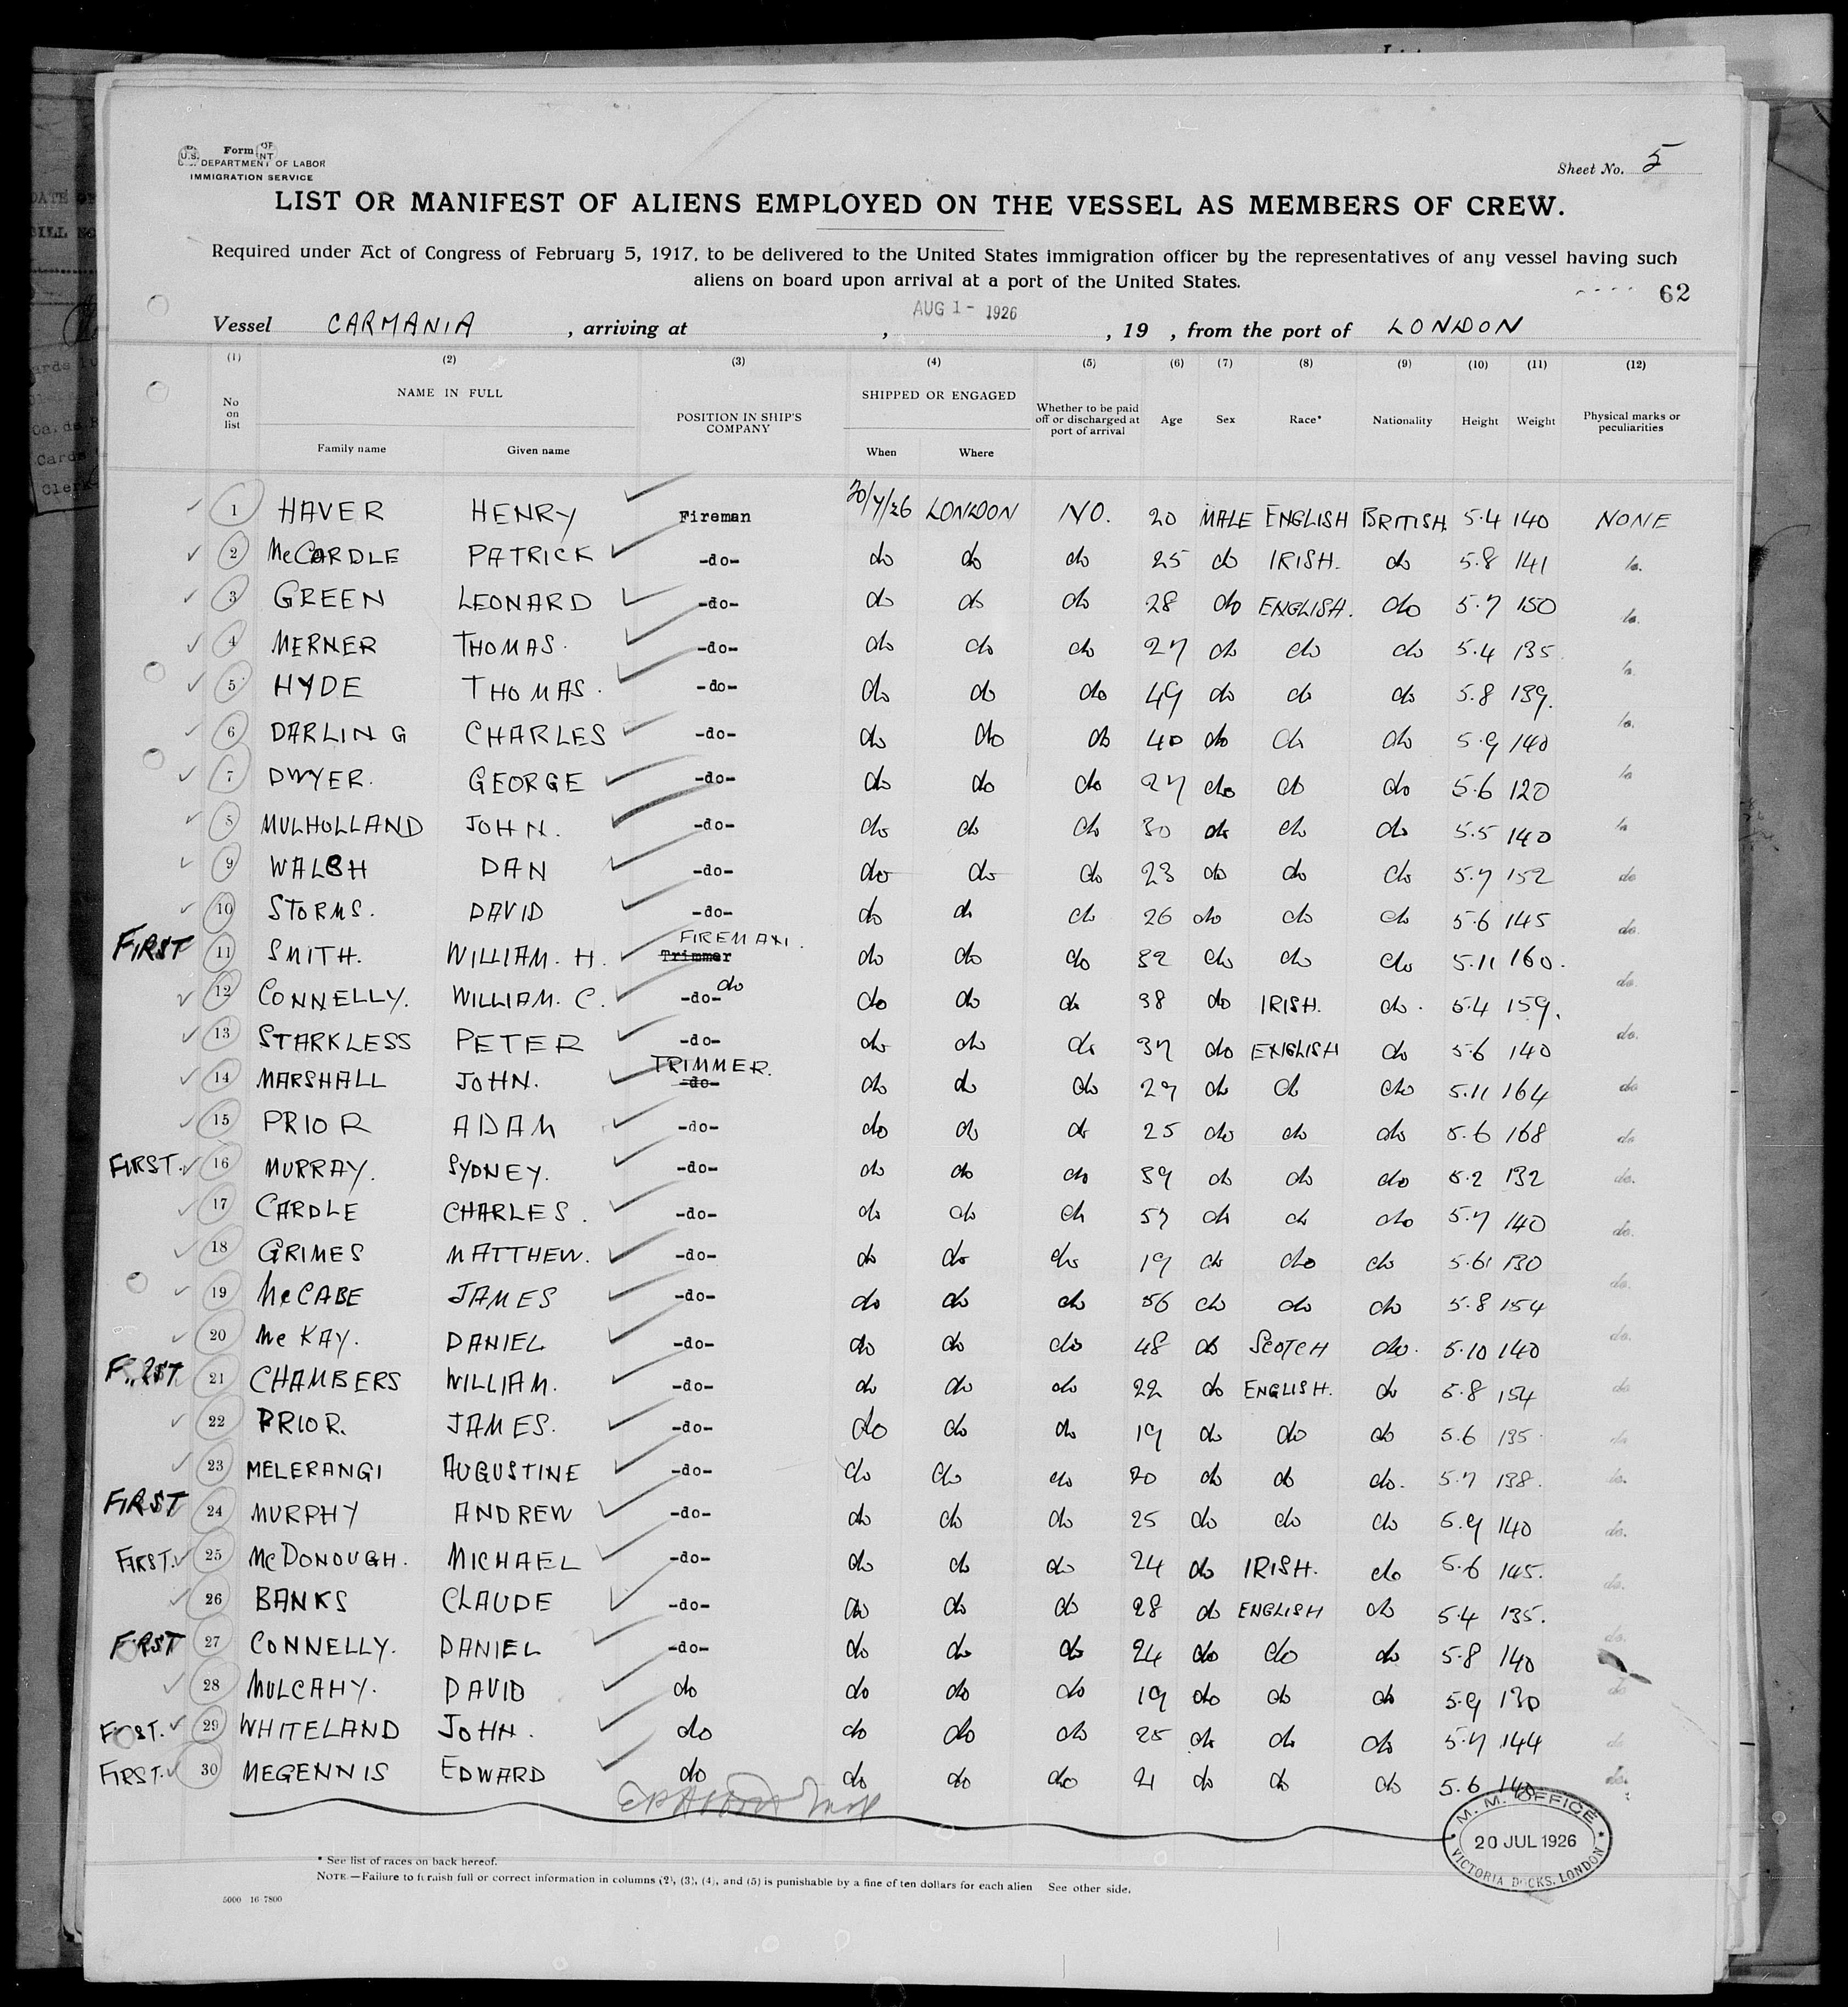 Form
U.S. DEPARTMENT OF LABOR
IMMIGRATION SERVICE
Sheet No. 5
LIST OR MANIFEST OF ALIENS EMPLOYED ON THE VESSEL AS MEMBERS OF CREW.
Required under Act of Congress of February 5, 1917, to be delivered to the United States immigration officer by the representatives of any vessel having such
aliens on board upon arrival at a port of the United States.
62
AUG 1 - 1926
Vessel CARMANIA , arriving at , , 19 , from the port of LONDON
(1) (2) (3) (4) (5) (6) (7) (8) (9) (10) (11) (12)
No on list NAME IN FULL Family name Given name POSITION IN SHIP'S COMPANY SHIPPED OR ENGAGED When Where Whether to be paid off or discharged at port of arrival Age Sex Race* Nationality Height Weight Physical marks or peculiarities
1 HAVER HENRY Fireman 20/7/26 LONDON NO. 20 MALE ENGLISH BRITISH 5.4 140 NONE
2 McCARDLE PATRICK -do- do do do 25 do IRISH. do 5.8 141
3 GREEN LEONARD -do- do do do 28 do ENGLISH. do 5.7 150
4 MERNER THOMAS. -do- do do do 27 do do do 5.4 135
5 HYDE THOMAS. -do- do do do 49 do do do 5.8 139.
6 DARLING CHARLES -do- do do do 40 do do do 5.9 140
7 DWYER. GEORGE -do- do do do 27 do do do 5.6 120
8 MULHOLLAND JOHN. -do- do do do 30 do do do 5.5 140
9 WALSH DAN -do- do do do 23 do do do 5.7 152 do
10 STORMS. DAVID -do- do do do 26 do do do 5.6 145 do.
FIRST 11 SMITH. WILLIAM. H. FIREMAN. Trimmer do do do 32 do do do 5.11 160. do.
12 CONNELLY. WILLIAM. C. -do- do do do do 38 do IRISH. do. 5.4 159. do.
13 STARKLESS PETER -do- do do do 37 do ENGLISH do 5.6 140 do.
14 MARSHALL JOHN. TRIMMER. -do- do do do 29 do do do 5.11 164 do
15 PRIOR ADAM -do- do do do 25 do do do 5.6 168 do
FIRST. 16 MURRAY. SYDNEY. -do- do do do 39 do do do 5.2 132 do.
17 CARDLE CHARLES. -do- do do do 57 do do do 5.7 140 do.
18 GRIMES MATTHEW. -do- do do do 19 do do do 5.6 130 do.
19 McCABE JAMES -do- do do do 56 do do do 5.8 154 do.
20 McKAY. DANIEL -do- do do do 48 do SCOTCH do. 5.10 140 do.
FIRST 21 CHAMBERS WILLIAM. -do- do do do 22 do ENGLISH. do 5.8 154 do
22 PRIOR. JAMES. -do- do do do 19 do do do 5.6 135 do
23 MELERANGI AUGUSTINE -do- do do do 20 do do do. 5.7 138. do.
FIRST 24 MURPHY ANDREW -do- do do do 25 do do do 5.9 140 do.
FIRST. 25 McDONOUGH. MICHAEL -do- do do do 24 do IRISH. do 5.6 145. do.
26 BANKS CLAUDE -do- do do do 28 do ENGLISH do 5.4 135.
FIRST 27 CONNELLY. DANIEL -do- do do do 24 do do do 5.8 140 do.
28 MULCAHY. DAVID do do do do 19 do do do 5.9 130 do
FIRST. 29 WHITELAND JOHN. do do do do 25 do do do 5.7 144 do
FIRST. 30 MEGENNIS EDWARD do do do do 21 do do do 5.6 140 do.
M. M. OFFICE
20 JUL 1926
VICTORIA DOCKS, LONDON
* See list of races on back hereof.
NOTE.—Failure to furnish full or correct information in columns (2), (3), (4), and (5) is punishable by a fine of ten dollars for each alien See other side.
5000 16-7800